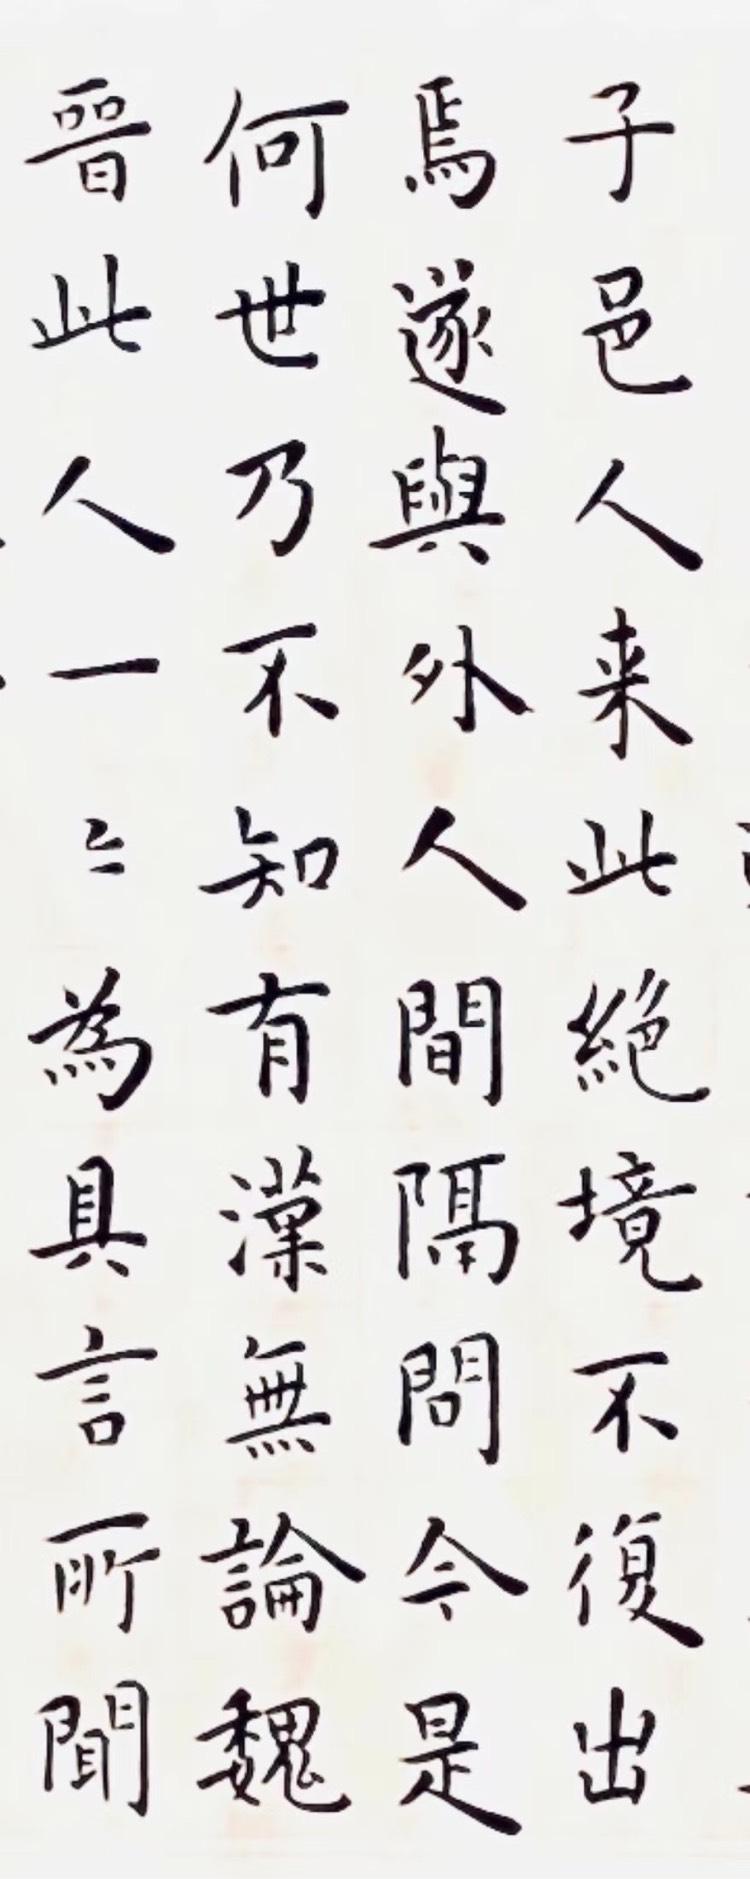 子邑人来此絶境不復出
焉遂與外人間隔問今是
何世乃不知有漢無論魏
晉此人一〻為具言所聞